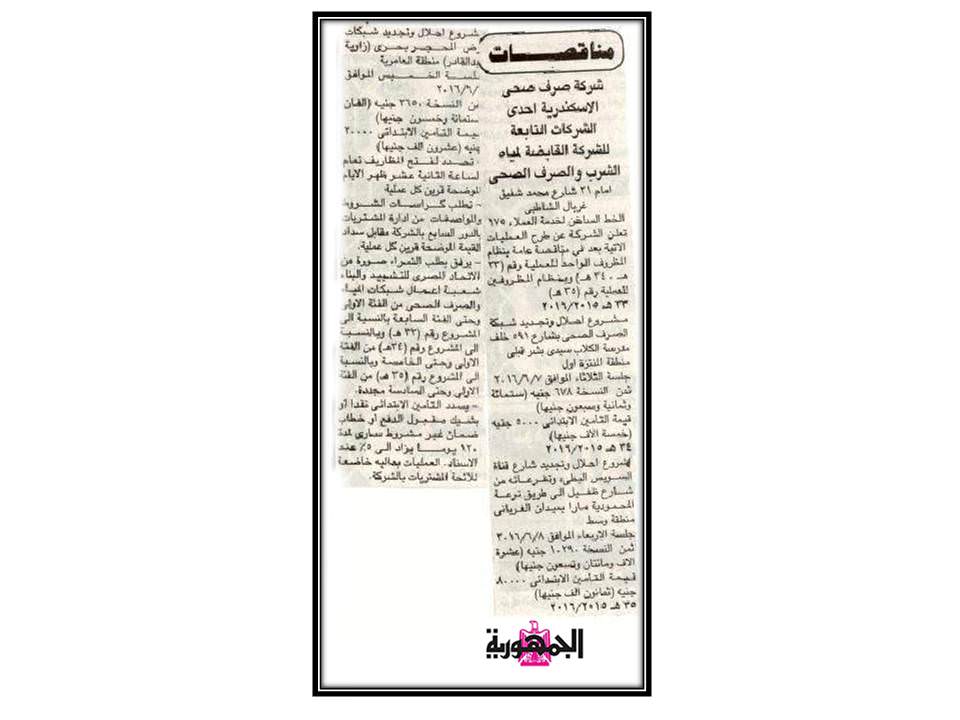 مناقصات
شركة صرف صحى
الإسكندرية احدى
الشركات التابعة
للشركة القابضة لمياه
الشرب والصرف الصحى
امام ٢١ شارع محمد شفيق
غربال الشاطبى
الخط الساخن لخدمة العملاء ١٧٥
تعلن الشركة عن طرح العمليات
الاتية بعد فى مناقصة عامة بنظام
المظروف الواحد للعملية رقم (٣٣
هـ ـ ٣٤ هـ) وبنظام المظروفين
للعملية رقم (٣٥ هـ)
٣٣ هـ ٢٠١٦/٢٠١٥
مشروع احلال وتجديد شبكة
الصرف الصحى بشارع ٥٩١ خلف
مدرسة الكلاب سيدى بشر قبلى
منطقة المنتزة اول
جلسة الثلاثاء الموافق ٢٠١٦/٦/٧
ثمن النسخة ٦٧٨ جنيه (ستمائة
وثمانية وسبعون جنيها)
قيمة التأمين الابتدائى ٥٠٠٠ جنيه
(خمسة الاف جنيها)
٣٤ هـ ٢٠١٦/٢٠١٥
مشروع احلال وتجديد شارع قناة
السويس البطىء وتفرعاته من
شارع طفيل الى طريق ترعة
المحمودية مارا بميدان الغريانى
منطقة وسط
جلسة الاربعاء الموافق ٢٠١٦/٦/٨
ثمن النسخة ١٠٢٩٠ جنيه (عشرة
الاف ومائتان وتسعون جنيها)
قيمة التأمين الابتدائى ٨٠٠٠٠
جنيه (ثمانون الف جنيها)
٣٥ هـ ٢٠١٦/٢٠١٥
مشروع احلال وتجديد شبكات
المحجر بحرى (زاوية
عبدالقادر) منطقة العامرية
جلسة الخميس الموافق
٢٠١٦/٦/
ثمن النسخة ٢٦٥٠ جنيه (الفان
وستمائة وخمسون جنيها)
قيمة التأمين الابتدائى ٢٠٠٠٠
جنيه (عشرون الف جنيها)
- تحدد لفتح المظاريف تمام
الساعة الثانية عشر ظهر الايام
الموضحة قرين كل عملية
- تطلب كراسات الشروط
والمواصفات من ادارة المشتريات
بالدور السابع بالشركة مقابل سداد
القيمة الموضحة قرين كل عملية.
- يرفق بطلب الشراء صورة من
الاتحاد المصرى للتشييد والبناء
شعبة اعمال شبكات المياه
والصرف الصحى من الفئة الاولى
وحتى الفئة السابعة بالنسبة الى
المشروع رقم (٣٣ هـ) وبالنسبة
الى المشروع رقم (٣٤هـ) من الفئة
الاولى وحتى الخامسة وبالنسبة
الى المشروع رقم (٣٥ هـ) من الفئة
الاولى وحتى السادسة مجددة.
- يسدد التأمين الابتدائى نقدا او
بشيك مقبول الدفع او خطاب
ضمان غير مشروط سارى لمدة
١٢٠ يوما يزاد الى ٥٪ عند
الاسناد. العمليات بعاليه خاضعة
للائحة المشتريات بالشركة.
الجمهورية